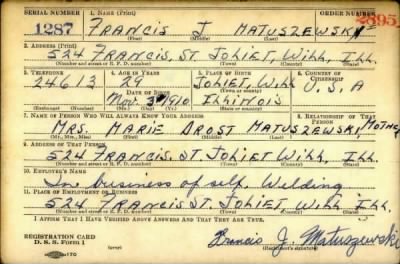 SERIAL NUMBER 1. NAME (Print) ORDER NUMBER
1287 FRANCIS J MATUSZEWSKI 2895
(First) (Middle) (Last)
2. ADDRESS (Print)
524 FRANCIS, ST. JOLIET, WILL, ILL.
(Number and street or R. F. D. number) (Town) (County) (State)
3. TELEPHONE 4. AGE IN YEARS 5. PLACE OF BIRTH 6. COUNTRY OF CITIZENSHIP
24613 29 JOLIET, WILL U.S.A
DATE OF BIRTH (Town or county)
Nov. 3 1910 ILLINOIS
(Mo.) (Day) (Yr.) (State or country)
7. NAME OF PERSON WHO WILL ALWAYS KNOW YOUR ADDRESS 8. RELATIONSHIP OF THAT PERSON
MRS. MARIE DROST MATUSZEWSKI, MOTHER
(Mr., Mrs., Miss) (First) (Middle) (Last)
9. ADDRESS OF THAT PERSON
524 FRANCIS, ST. JOLIET WILL, ILL.
(Number and street or R. F. D. number) (Town) (County) (State)
10. EMPLOYER'S NAME
In business of self. Welding.
11. PLACE OF EMPLOYMENT OR BUSINESS
524 FRANCIS, ST. JOLIET WILL ILL.
(Number and street or R. F. D. number) (Town) (County) (State)
I AFFIRM THAT I HAVE VERIFIED ABOVE ANSWERS AND THAT THEY ARE TRUE.
REGISTRATION CARD
D. S. S. Form 1 (over) Francis J. Matuszewski
(Registrant's signature)